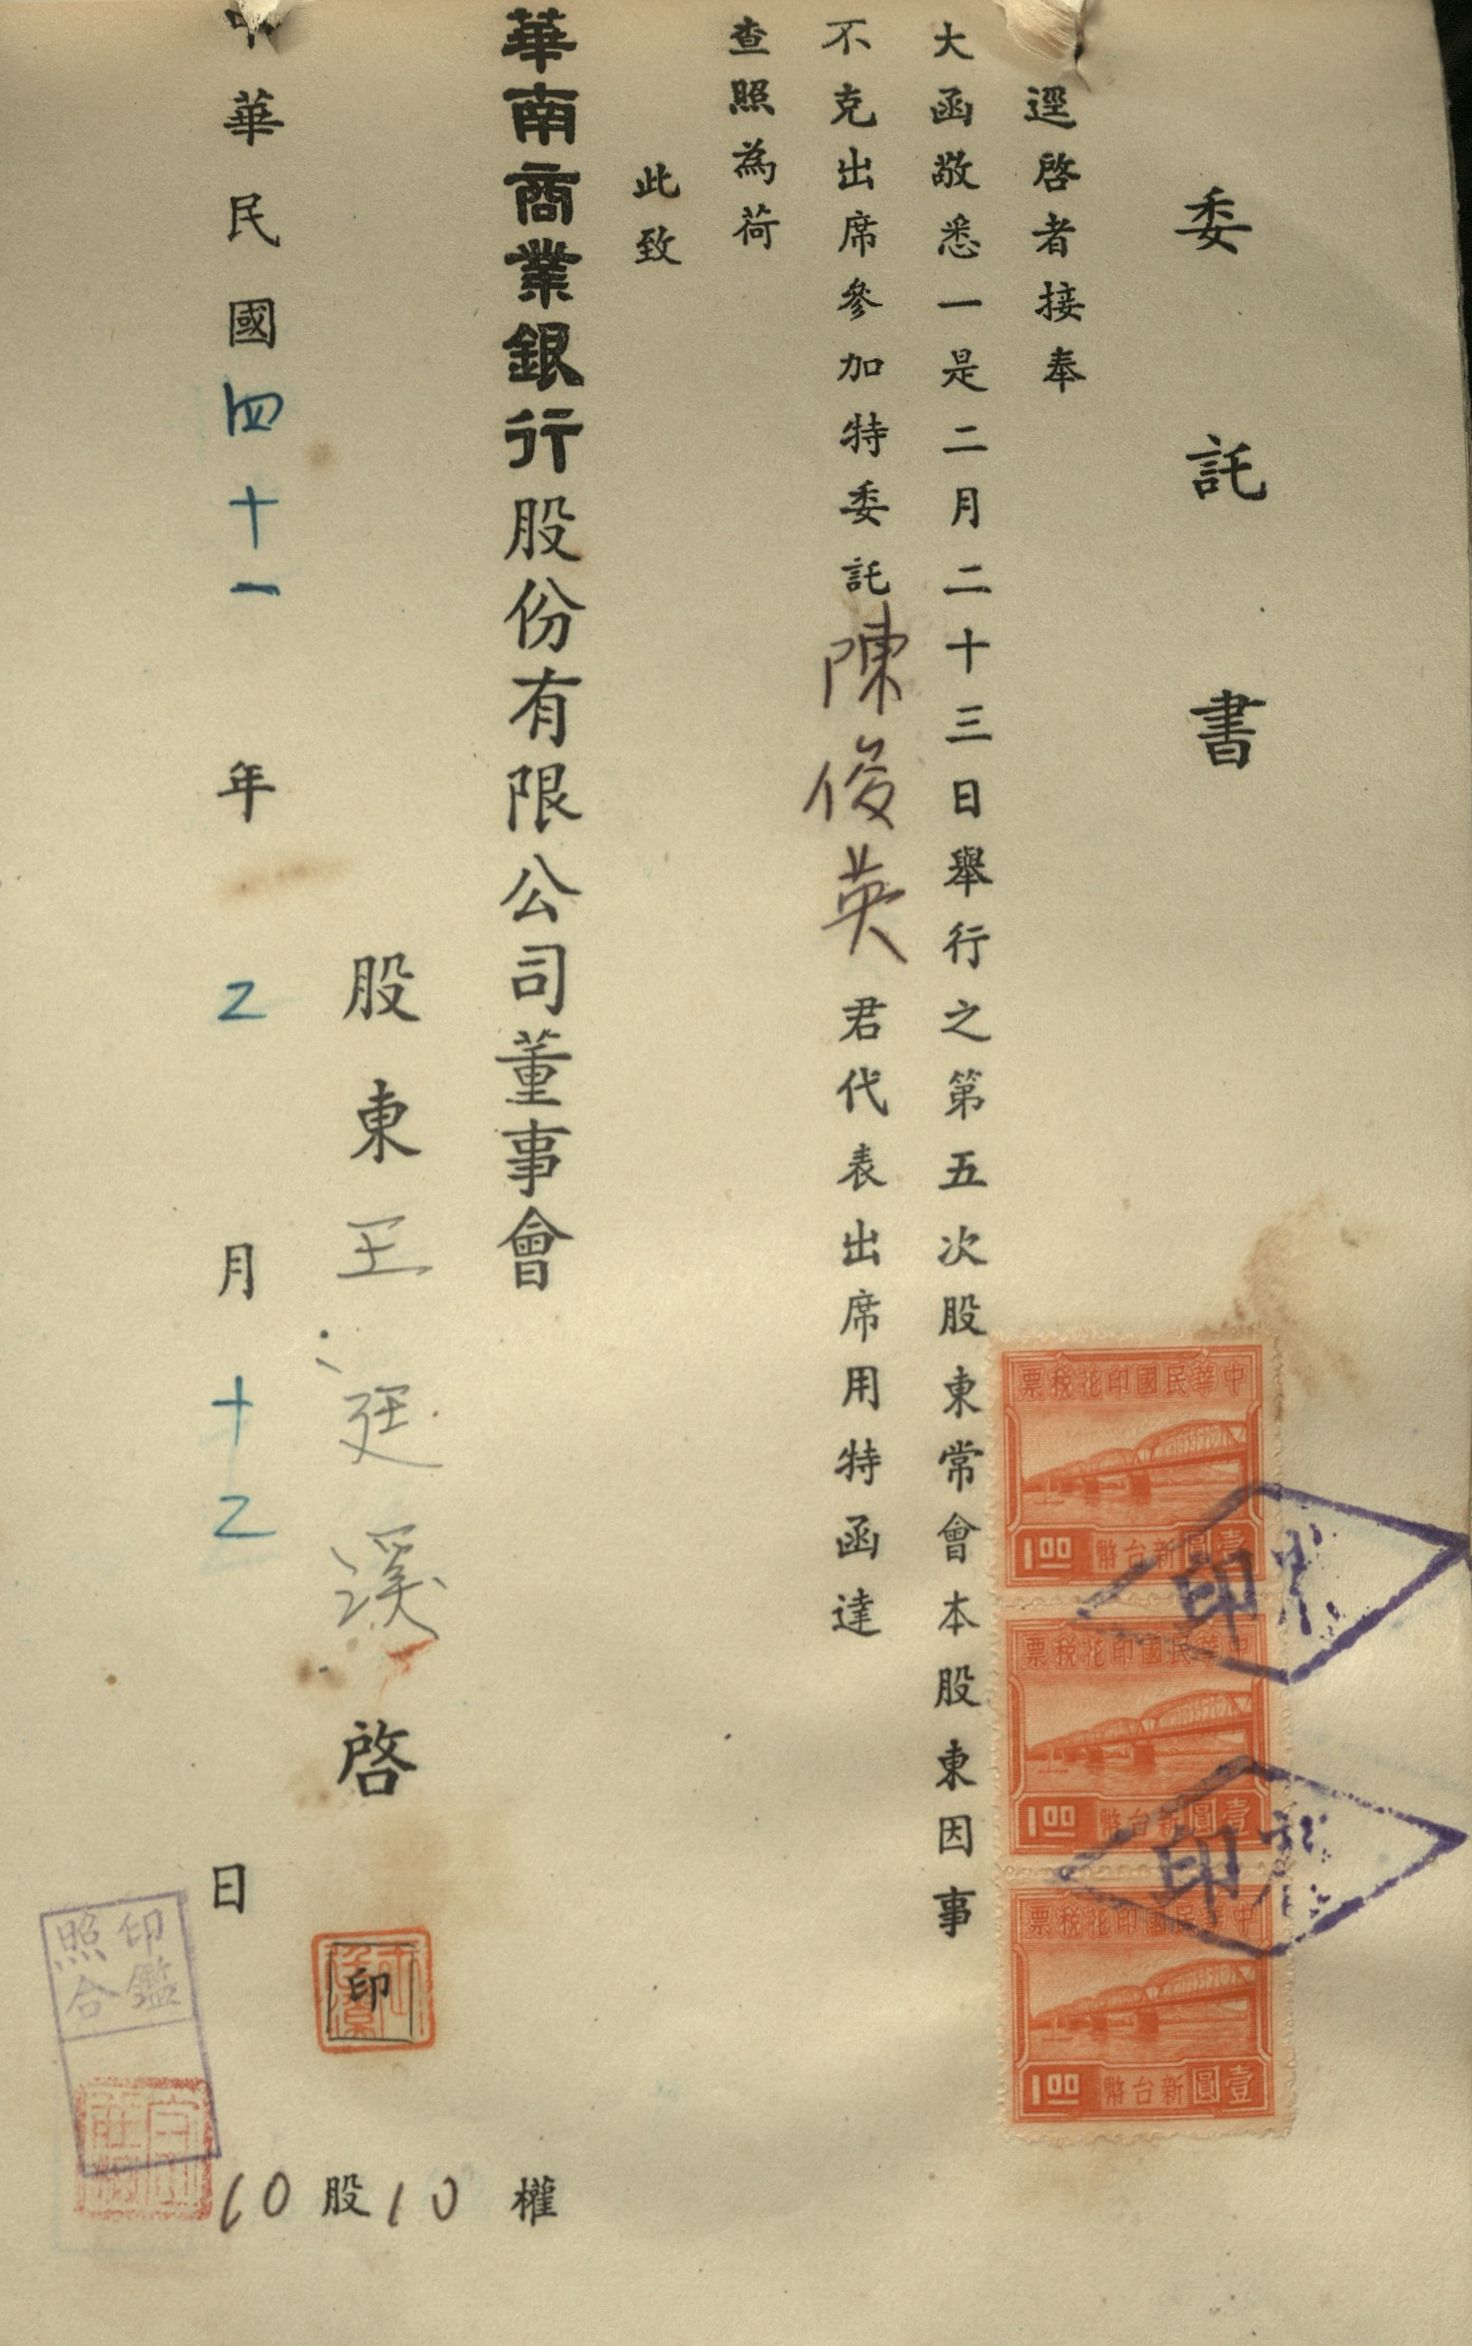 委託書
逕啓者接奉
大函敬悉一是二月二十三日舉行之第五次股東常會本股東因事
不克出席參加特委託陳俊英君代表出席用特函達
查照為荷
此致
華南商業銀行股份有限公司董事會
股東王廷溪啓
印
中華民國四十一年2月十2日
10股10權
中華民國印花稅票
壹圓新台幣
1.00
中華民國印花稅票
壹圓新台幣
1.00
中華民國印花稅票
壹圓新台幣
1.00
印
印
印鑑
照合